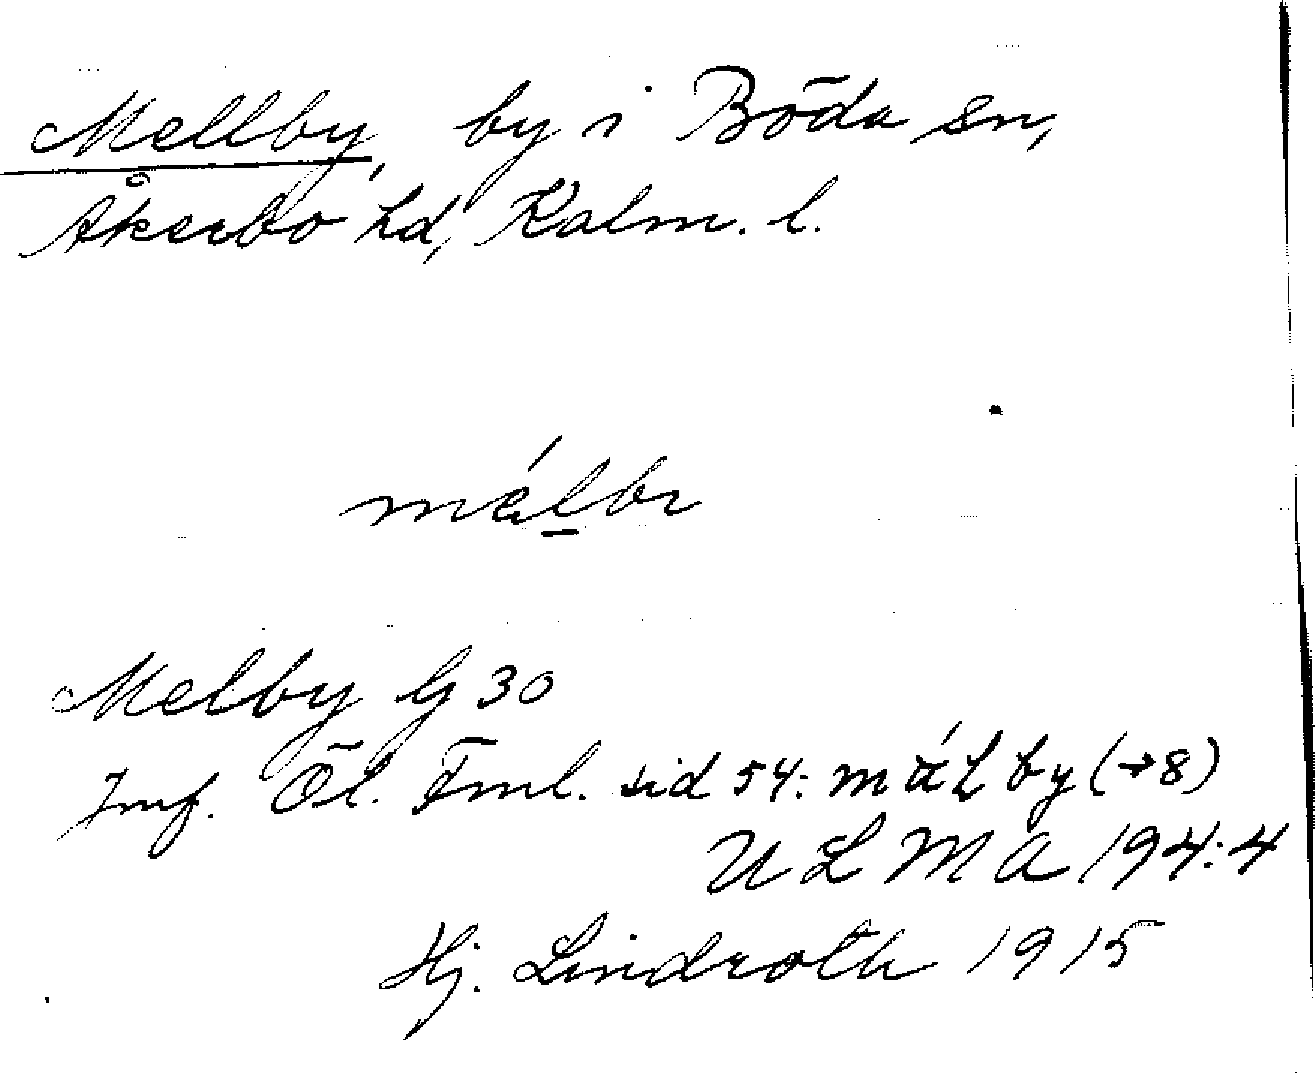 Mellby, by i Böda sn,
Åkerbo hd, Kalm. l.
mǽlbı
Melby G 30
Jmf. Öl. Fml. sid 54: by (→8)
ULMA 194:4
Hj. Lindroth 1915